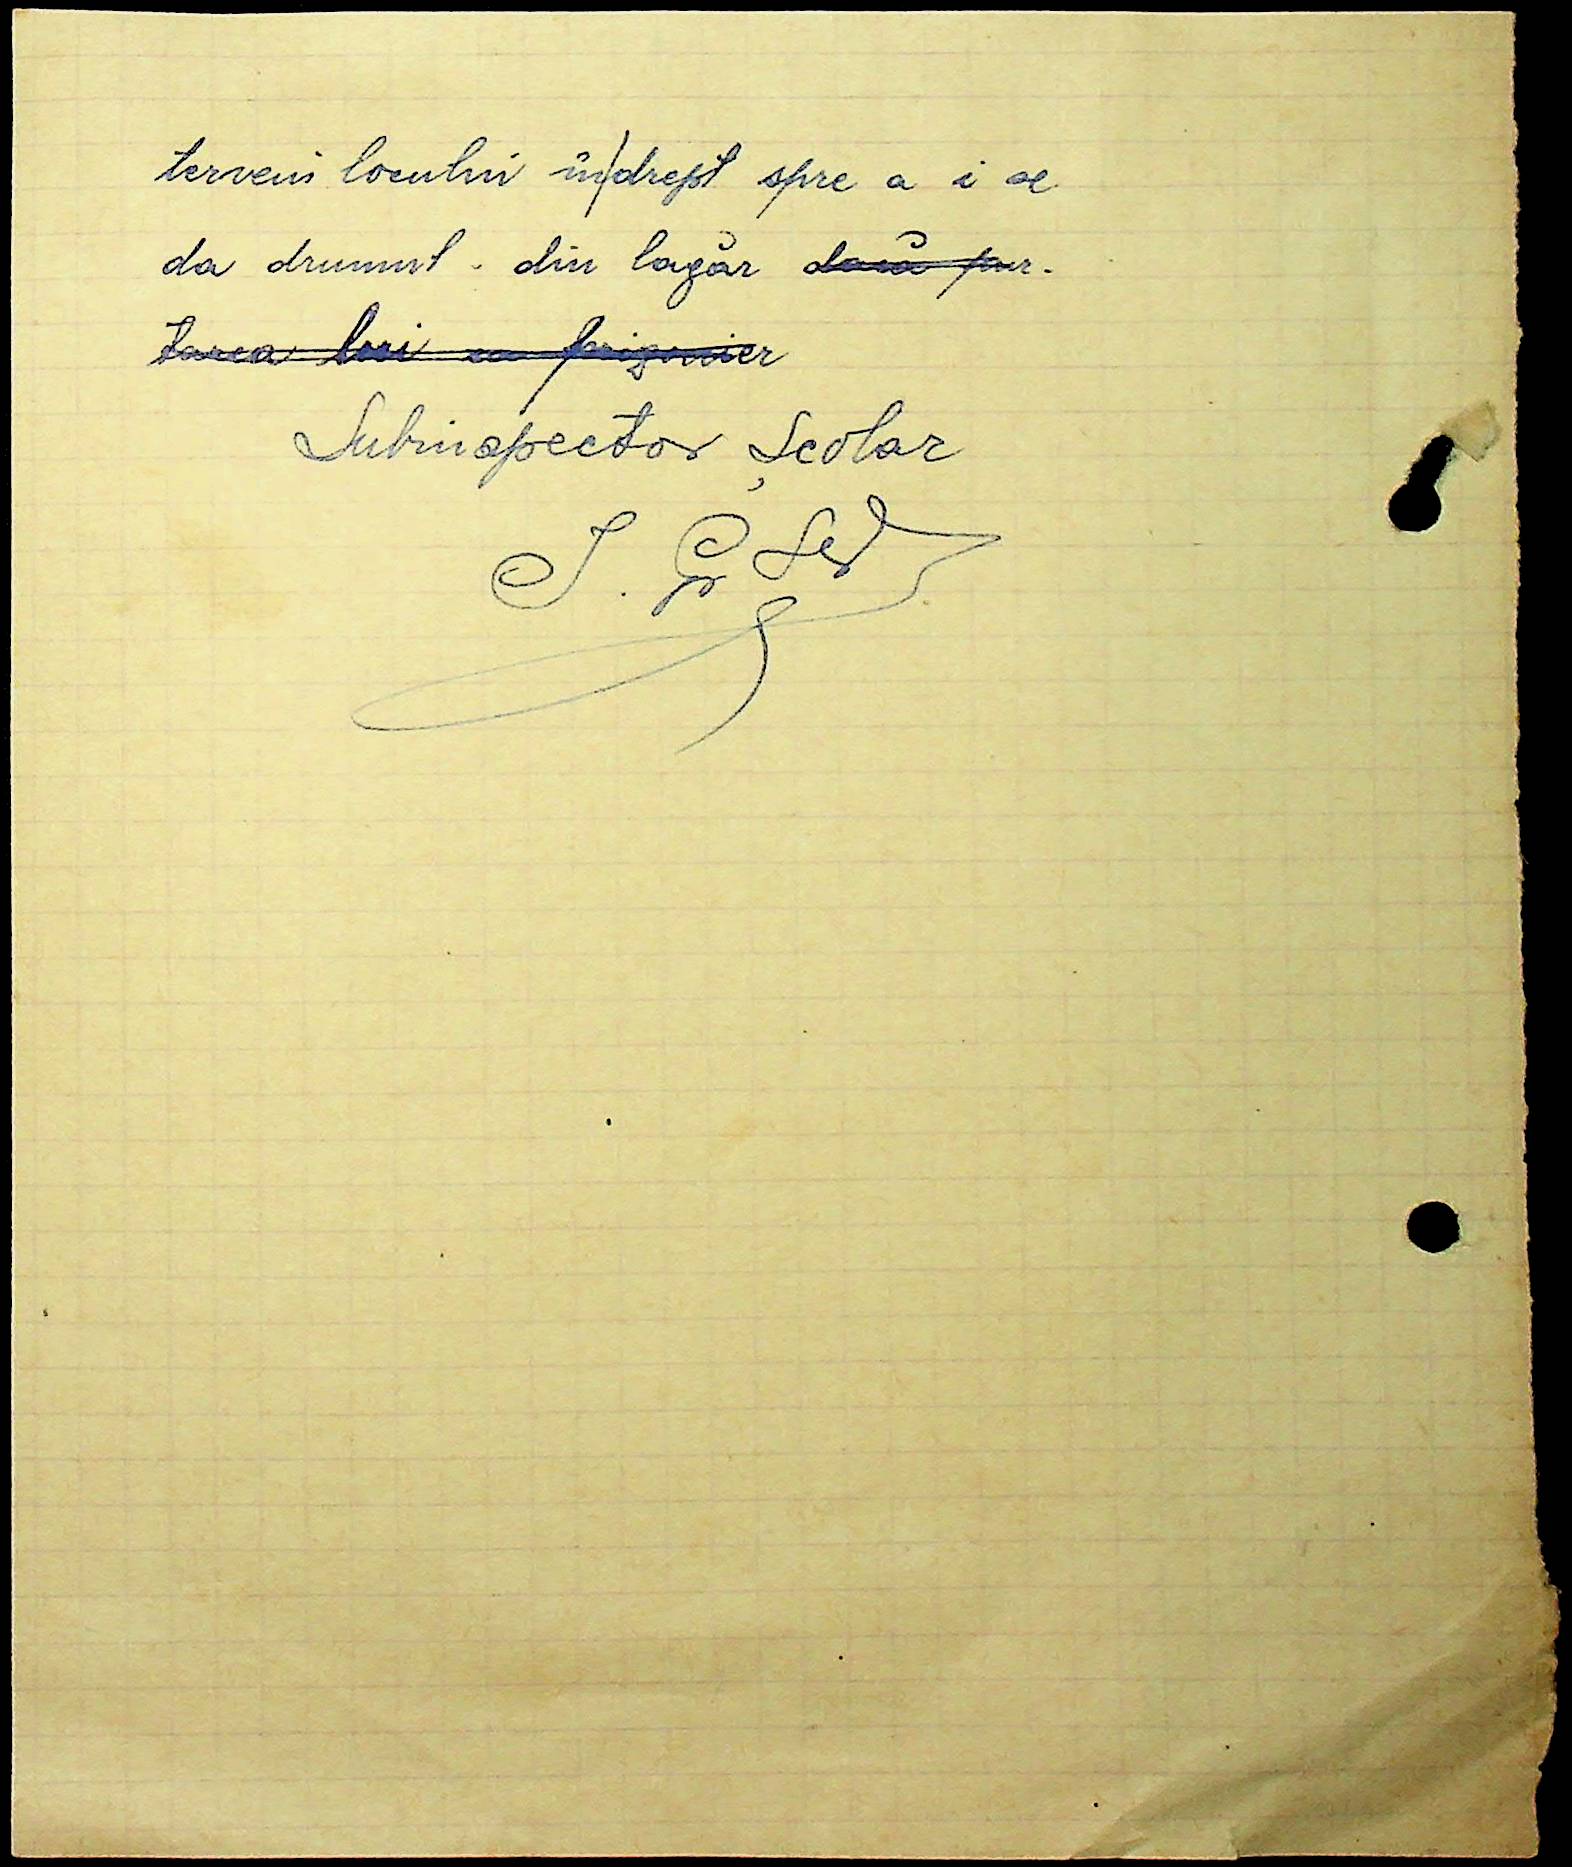 terveni locului în/drept spre a i se
da drumul. din lagăr dacă pur-
tarea lui ca prizonier
Subinspector Școlar
I. Gr